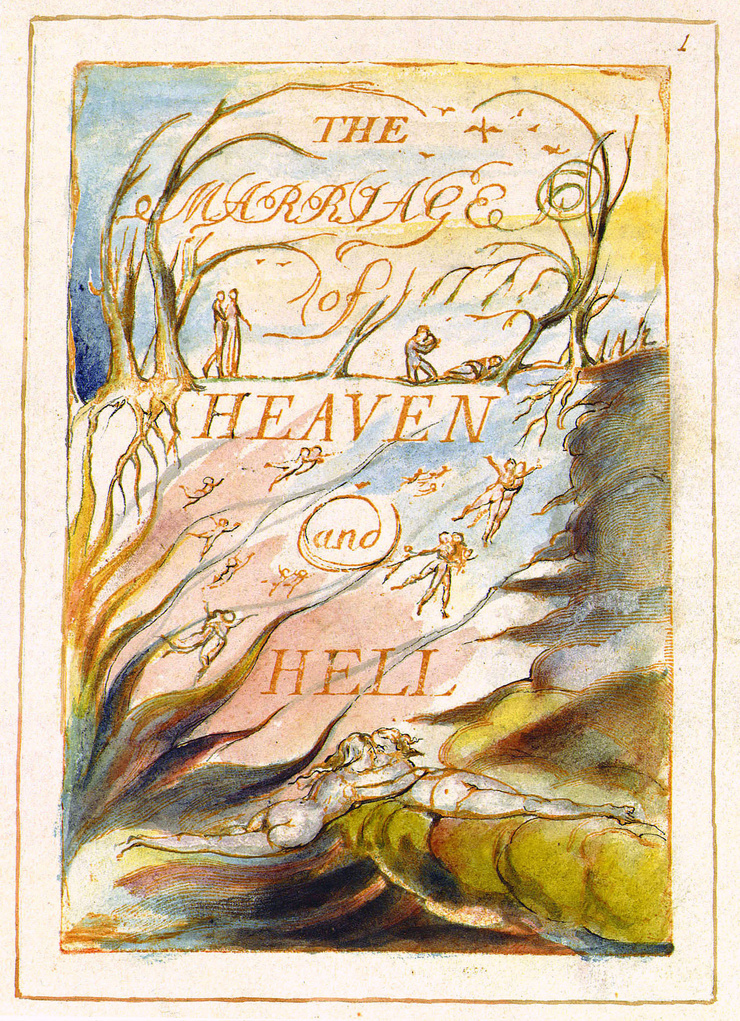 1
THE
MARRIAGE
of
HEAVEN
and
HELL